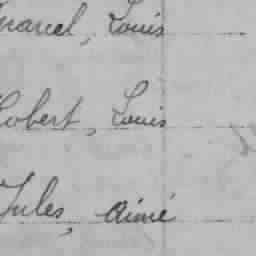 Marcel, Louis
Robert, Louis
Jules, Aimé